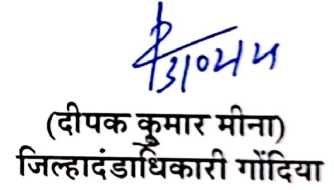 (दीपक कुमार मीना)
जिल्हादंडाधिकारी गोंदिया